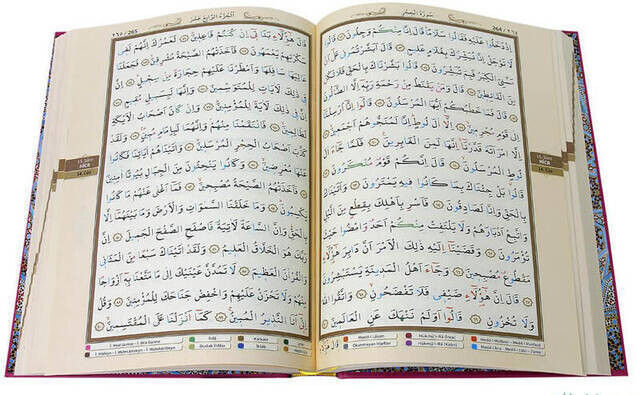 ٢٦٤ / 264
سُورَةُ الْحِجْرِ
اِذْ دَخَلُوا عَلَيْهِ فَقَالُوا سَلَامًا قَالَ اِنَّا مِنْكُمْ وَجِلُونَ قَالُوا
لَا تَوْجَلْ اِنَّا نُبَشِّرُكَ بِغُلَامٍ عَلِيمٍ قَالَ اَبَشَّرْتُمُونِي عَلٰى اَنْ
مَسَّنِيَ الْكِبَرُ فَبِمَ تُبَشِّرُونَ قَالُوا بَشَّرْنَاكَ بِالْحَقِّ فَلَا تَكُنْ
مِنَ الْقَانِطِينَ قَالَ وَمَنْ يَقْنَطُ مِنْ رَحْمَةِ رَبِّهِ اِلَّا الضَّالُّونَ
قَالَ فَمَا خَطْبُكُمْ اَيُّهَا الْمُرْسَلُونَ قَالُوا اِنَّا اُرْسِلْنَا
اِلٰى قَوْمٍ مُجْرِمِينَ اِلَّا اٰلَ لُوطٍ اِنَّا لَمُنَجُّوهُمْ اَجْمَعِينَ
اِلَّا امْرَاَتَهُ قَدَّرْنَا اِنَّهَا لَمِنَ الْغَابِرِينَ فَلَمَّا جَاءَ اٰلَ
لُوطٍ الْمُرْسَلُونَ قَالَ اِنَّكُمْ قَوْمٌ مُنْكَرُونَ
قَالُوا بَلْ جِئْنَاكَ بِمَا كَانُوا فِيهِ يَمْتَرُونَ وَاَتَيْنَاكَ
بِالْحَقِّ وَاِنَّا لَصَادِقُونَ فَاَسْرِ بِاَهْلِكَ بِقِطْعٍ مِنَ الَّيْلِ
وَاتَّبِعْ اَدْبَارَهُمْ وَلَا يَلْتَفِتْ مِنْكُمْ اَحَدٌ وَامْضُوا حَيْثُ
تُؤْمَرُونَ وَقَضَيْنَا اِلَيْهِ ذٰلِكَ الْاَمْرَ اَنَّ دَابِرَ هٰؤُلَاءِ
مَقْطُوعٌ مُصْبِحِينَ وَجَاءَ اَهْلُ الْمَدِينَةِ يَسْتَبْشِرُونَ
قَالَ اِنَّ هٰؤُلَاءِ ضَيْفِي فَلَا تَفْضَحُونِ وَاتَّقُوا اللّٰهَ
وَلَا تُخْزُونِ قَالُوا اَوَلَمْ نَنْهَكَ عَنِ الْعَالَمِينَ
15. Sûre
HİCR
14. Cüz
اَلْجُزْءُ الرَّابِعَ عَشَرَ
٢٦٥ / 265
قَالَ هٰؤُلَاءِ بَنَاتِي اِنْ كُنْتُمْ فَاعِلِينَ لَعَمْرُكَ اِنَّهُمْ لَفِي
سَكْرَتِهِمْ يَعْمَهُونَ فَاَخَذَتْهُمُ الصَّيْحَةُ مُشْرِقِينَ فَجَعَلْنَا
عَالِيَهَا سَافِلَهَا وَاَمْطَرْنَا عَلَيْهِمْ حِجَارَةً مِنْ سِجِّيلٍ اِنَّ
فِي ذٰلِكَ لَاٰيَاتٍ لِلْمُتَوَسِّمِينَ وَاِنَّهَا لَبِسَبِيلٍ مُقِيمٍ
اِنَّ فِي ذٰلِكَ لَاٰيَةً لِلْمُؤْمِنِينَ وَاِنْ كَانَ اَصْحَابُ الْاَيْكَةِ
لَظَالِمِينَ فَانْتَقَمْنَا مِنْهُمْ وَاِنَّهُمَا لَبِاِمَامٍ مُبِينٍ وَلَقَدْ
كَذَّبَ اَصْحَابُ الْحِجْرِ الْمُرْسَلِينَ وَاٰتَيْنَاهُمْ اٰيَاتِنَا فَكَانُوا
عَنْهَا مُعْرِضِينَ وَكَانُوا يَنْحِتُونَ مِنَ الْجِبَالِ بُيُوتًا اٰمِنِينَ
فَاَخَذَتْهُمُ الصَّيْحَةُ مُصْبِحِينَ فَمَا اَغْنٰى عَنْهُمْ مَا كَانُوا
يَكْسِبُونَ وَمَا خَلَقْنَا السَّمٰوَاتِ وَالْاَرْضَ وَمَا بَيْنَهُمَا اِلَّا
بِالْحَقِّ وَاِنَّ السَّاعَةَ لَاٰتِيَةٌ فَاصْفَحِ الصَّفْحَ الْجَمِيلَ اِنَّ
رَبَّكَ هُوَ الْخَلَّاقُ الْعَلِيمُ وَلَقَدْ اٰتَيْنَاكَ سَبْعًا مِنَ الْمَثَانِي
وَالْقُرْاٰنَ الْعَظِيمَ لَا تَمُدَّنَّ عَيْنَيْكَ اِلٰى مَا مَتَّعْنَا بِهِ اَزْوَاجًا
مِنْهُمْ وَلَا تَحْزَنْ عَلَيْهِمْ وَاخْفِضْ جَنَاحَكَ لِلْمُؤْمِنِينَ وَقُلْ
اِنِّي اَنَا النَّذِيرُ الْمُبِينُ كَمَا اَنْزَلْنَا عَلَى الْمُقْتَسِمِينَ
15. Sûre
HİCR
14. Cüz